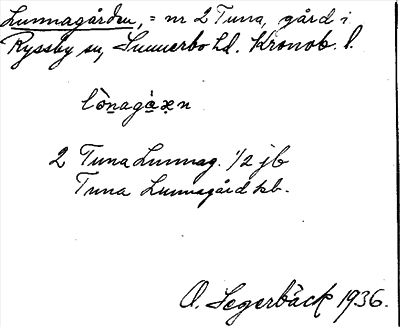 Lunnagården, = nr 2 Tuna, gård i
Ryssby sn, Sunnerbo hd. Kronob. l.
2 Tuna Lunnag. 1/2 jb
Tuna Lunnagård kb.
O. Segerbäck 1936.